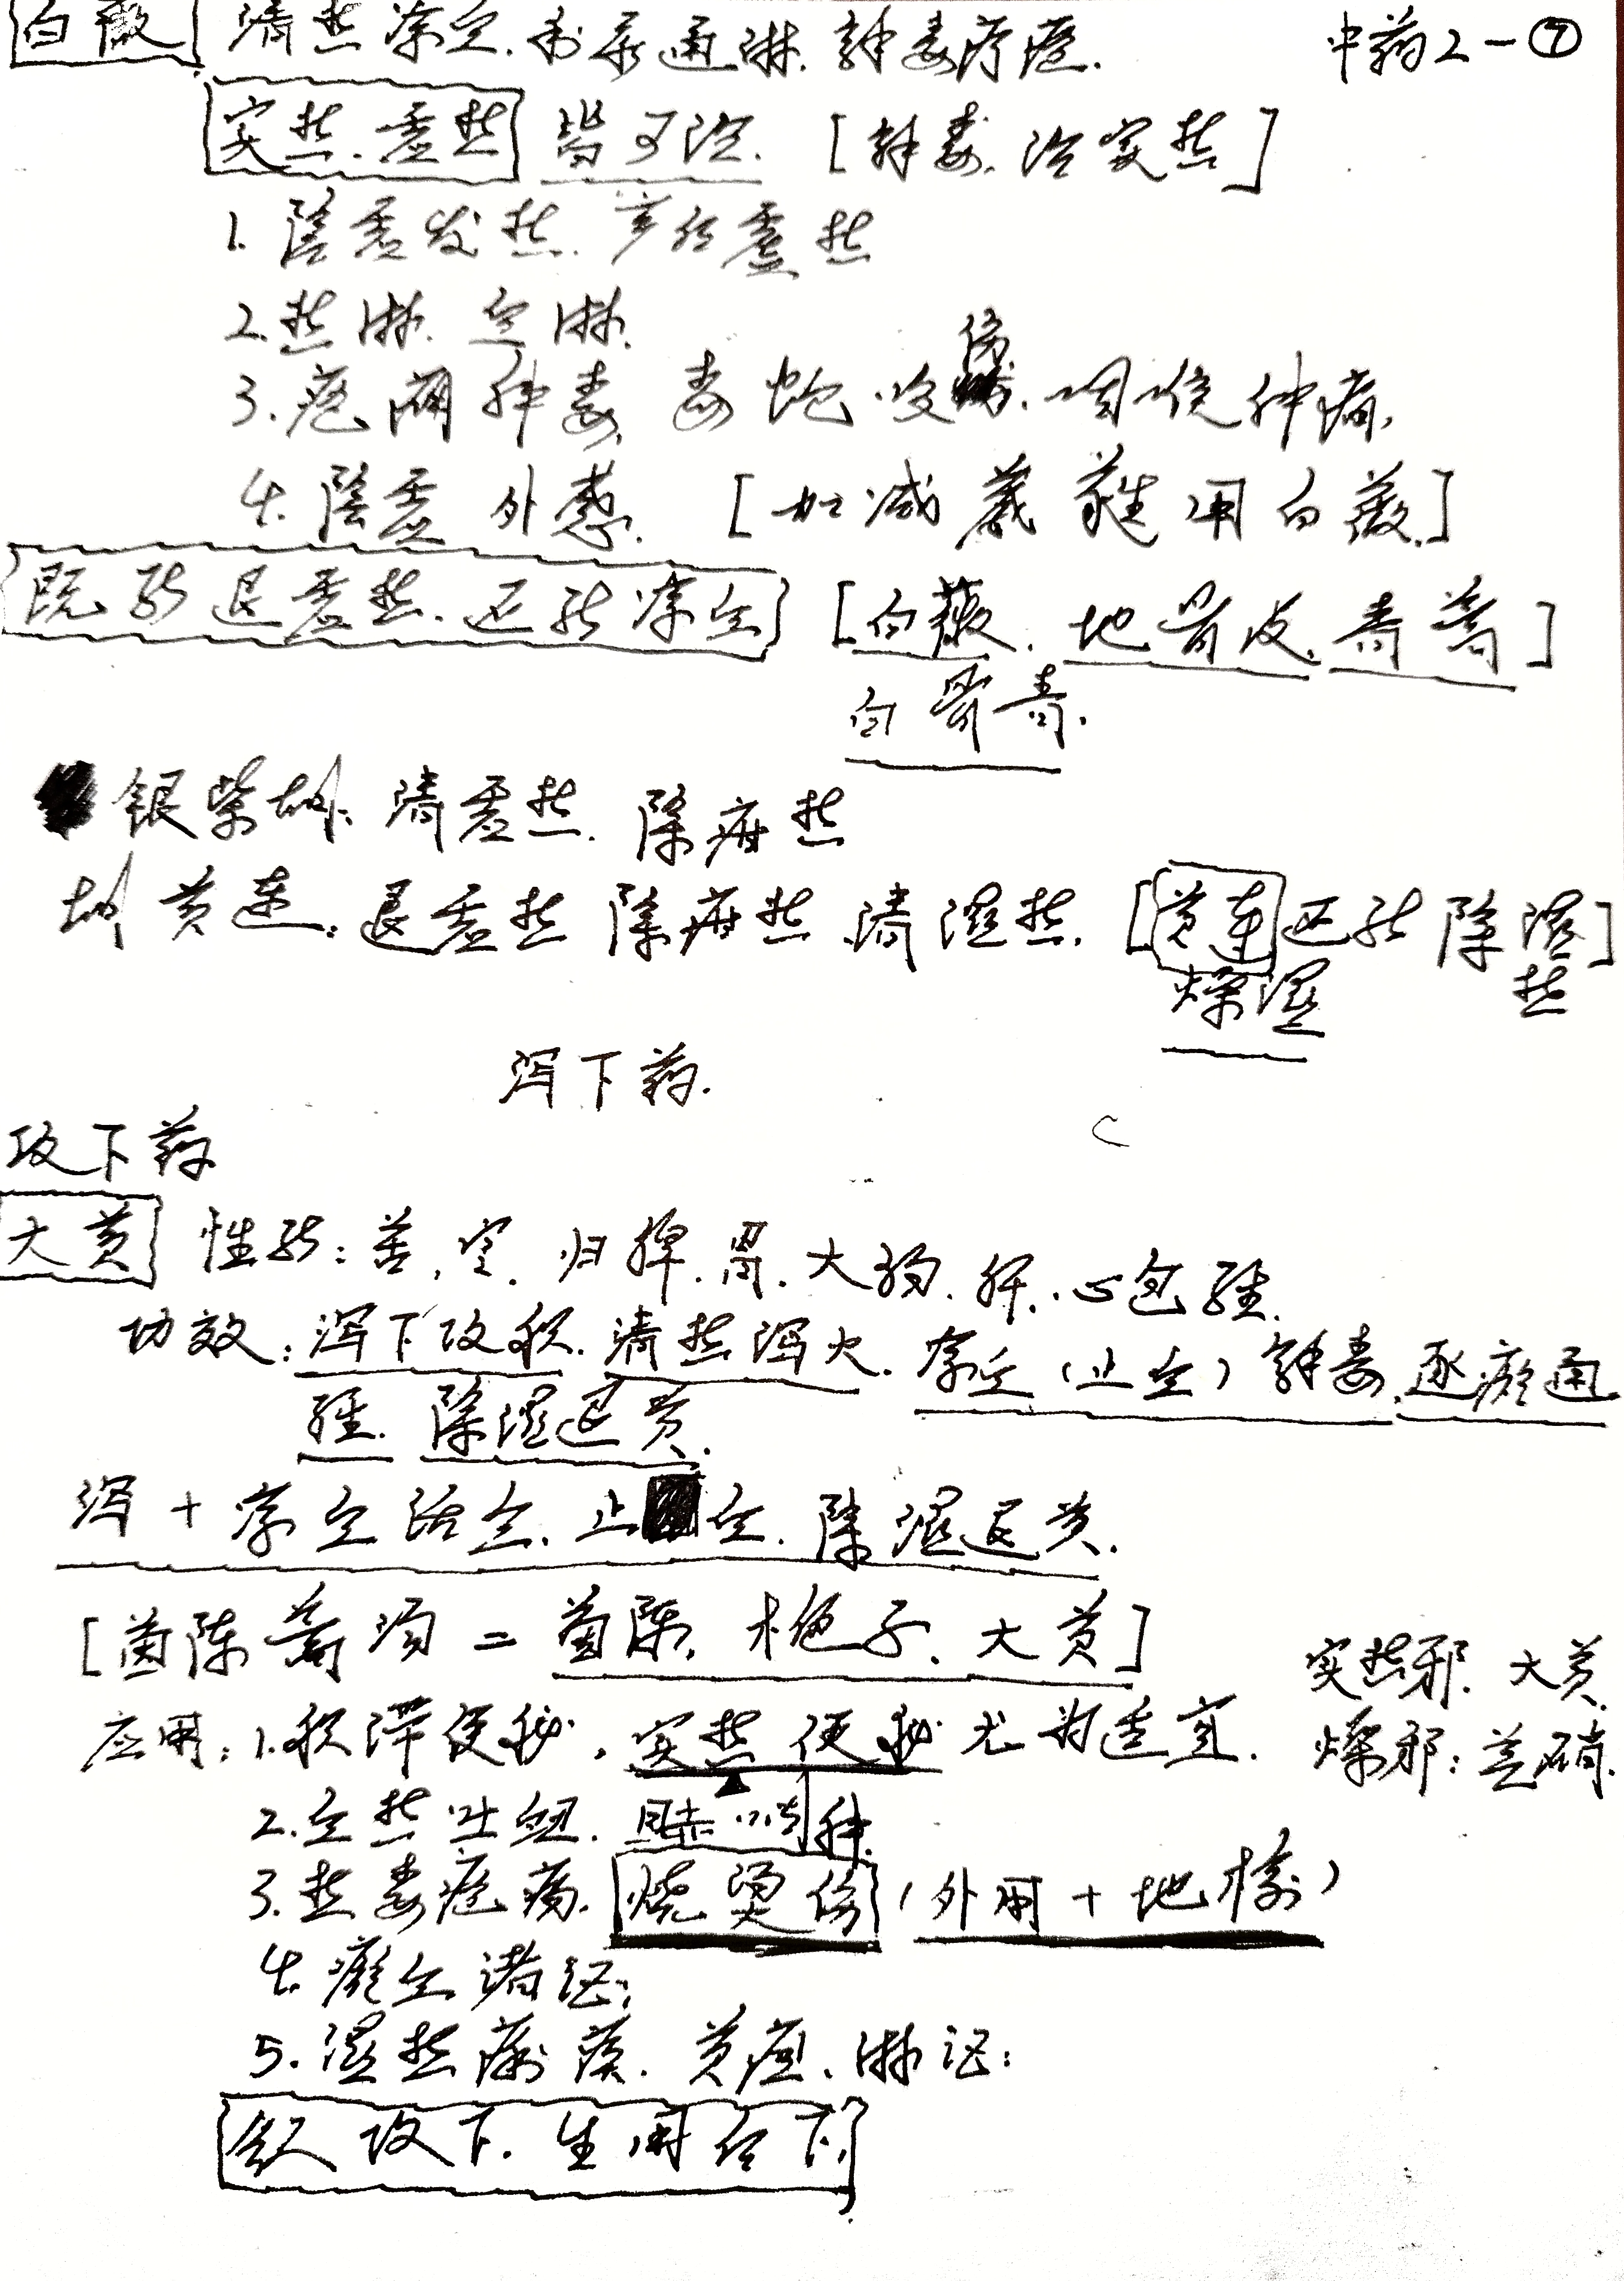 白薇 清热凉血.利尿通淋.解毒疗疮. 中药2-⑦
实热.虚热 皆可治. [解毒.治实热]
1. 阴虚发热.产后虚热
2.热淋.血淋.
3.疮痈肿毒,毒蛇咬伤.咽喉肿痛,
4.阴虚外感. [加减葳蕤用白薇]
既能退虚热.还能凉血 [白薇.地骨皮.青蒿]
白骨青.
银柴胡:清虚热.除疳热
胡黄连:退虚热 除疳热 清湿热. [黄连还能除湿热]
燥湿
泻下药.
攻下药
大黄 性能:苦,寒.归脾.胃.大肠.肝.心包经.
功效:泻下攻积.清热泻火.凉血(止血)解毒,逐瘀通
经.除湿退黄.
泻+凉血活血.止血.除湿退黄.
[茵陈蒿汤=茵陈,栀子.大黄]
实热邪.大黄.
应用:1.积滞便秘.实热便秘尤为适宜. 燥邪:芒硝.
2.血热吐衄.目赤咽肿.
3.热毒疮疡.烧烫伤(外用+地榆)
4.瘀血诸证;
5.湿热痢疾.黄疸.淋证:
欲攻下.生用后下,